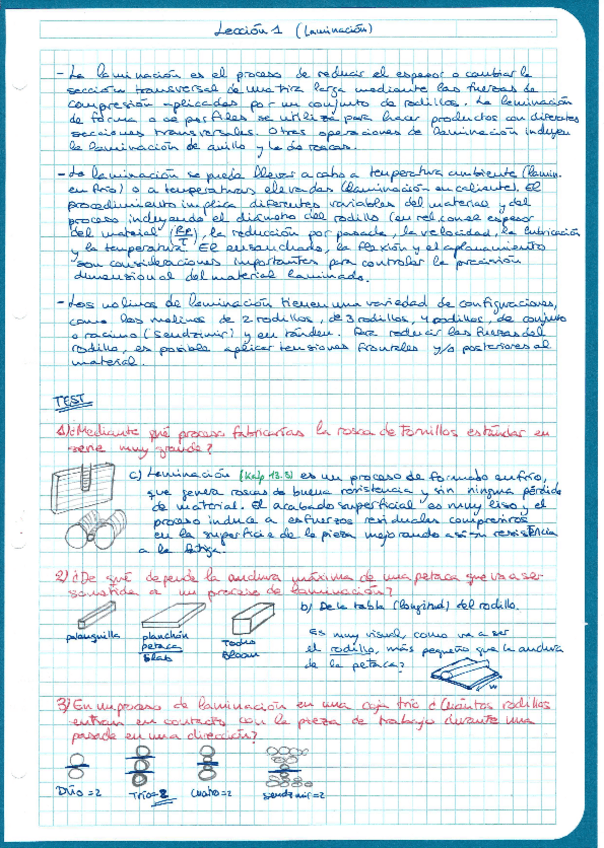 Lección 1 (Laminación)
- La laminación es el proceso de reducir el espesor o cambiar la
sección transversal de una tira larga mediante las fuerzas de
compresión aplicadas por un conjunto de rodillos. La laminación
de forma o de perfiles se utiliza para hacer productos con diferentes
secciones transversales. Otras operaciones de laminación incluyen
la laminación de anillo y la de roscas.
- La laminación se puede llevar a cabo a temperatura ambiente (lamin.
en frío) o a temperaturas elevadas (laminación en caliente). El
procedimiento implica diferentes variables del material y del
proceso incluyendo el diámetro del rodillo (en rel. con el espesor
del material), la reducción por pasada, la velocidad, la lubricación
y la temperatura. El ensanchado, la flexión y el aplanamiento
son consideraciones importantes para controlar la precisión
dimensional del material laminado.
- Los molinos de laminación tienen una variedad de configuraciones,
como los molinos de 2 rodillos, de 3 rodillos, 4 rodillos, de conjunto
o racimo (Sendzimir) y en tándem. Para reducir las fuerzas del
rodillo, es posible aplicar tensiones frontales y/o posteriores al
material.
TEST
1) ¿Mediante qué proceso fabricarías la rosca de Tornillos estándar en
serie muy grande?
c) Laminación (Kalp 13.5) es un proceso de formado en frío,
que genera roscas de buena resistencia y sin ninguna pérdida
de material. El acabado superficial es muy liso y el
proceso induce a esfuerzos residuales compresivos
en la superficie de la pieza mejorando así su resistencia
a la fatiga.
2) ¿De qué depende la anchura máxima de una petaca que va a ser
sometida a un proceso de laminación?
b) De la tabla (longitud) del rodillo.
palanquilla
planchón
petaca
slab
Tocho
Bloom
Es muy visual, como va a ser
el rodillo, más pequeño que la anchura
de la petaca?
3) En un proceso de laminación en una caja trío ¿Cuántos rodillos
entran en contacto con la pieza de trabajo durante una
pasada en una dirección?
Dúo = 2 Trío = 2 Cuarto = 2 Sendzimir = 2